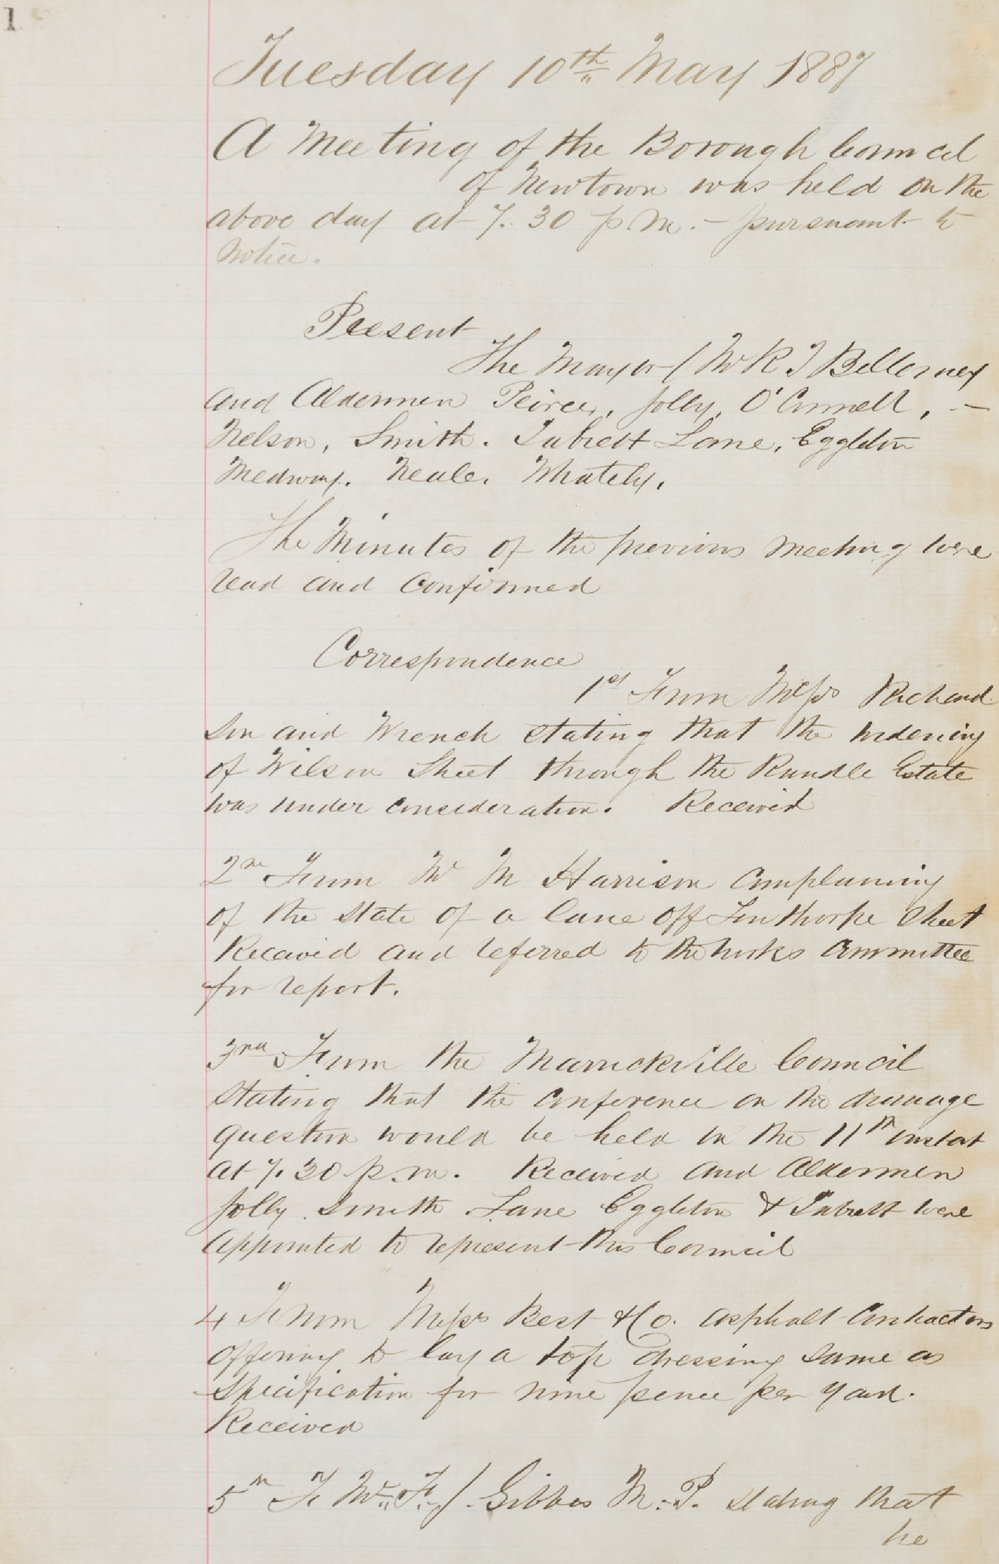 1
Tuesday 10th May 1887
A Meeting of the Borough Council
of Newtown was held on the
above day at 7.30 p m. – pursuant to
notice.
Present
The Mayor (Mr R J Bellemey
and Aldermen Peirce, Jolly, O'Connell, –
Nelson, Smith. Tabrett Lane, Eggleton
Medway. Neale. Whately.
The Minutes of the previous meeting were
read and confirmed
Correspondence
1st From Messrs Richard
son and Wrench stating that the widening
of Wilson Street through the Rundle Estate
was under consideration. Received
2nd From Mr M Harrison complaining
of the state of a lane off Linthorpe Street
Received and referred to the Works Committee
for report.
3rd From the Marrickville Council
stating that the conference on the drainage
question would be held on the 11th instant
at 7.30 p.m. Received and Aldermen
Jolly Smith Lane Eggleton & Tabrett were
appointed to represent this Council
4 From Messrs Best & Co. asphalt contractors
offering to lay a top dressing same as
specification for nine pence per yard.
Received
5th Fr Mr. F. J. Gibbes M.P. stating that
he